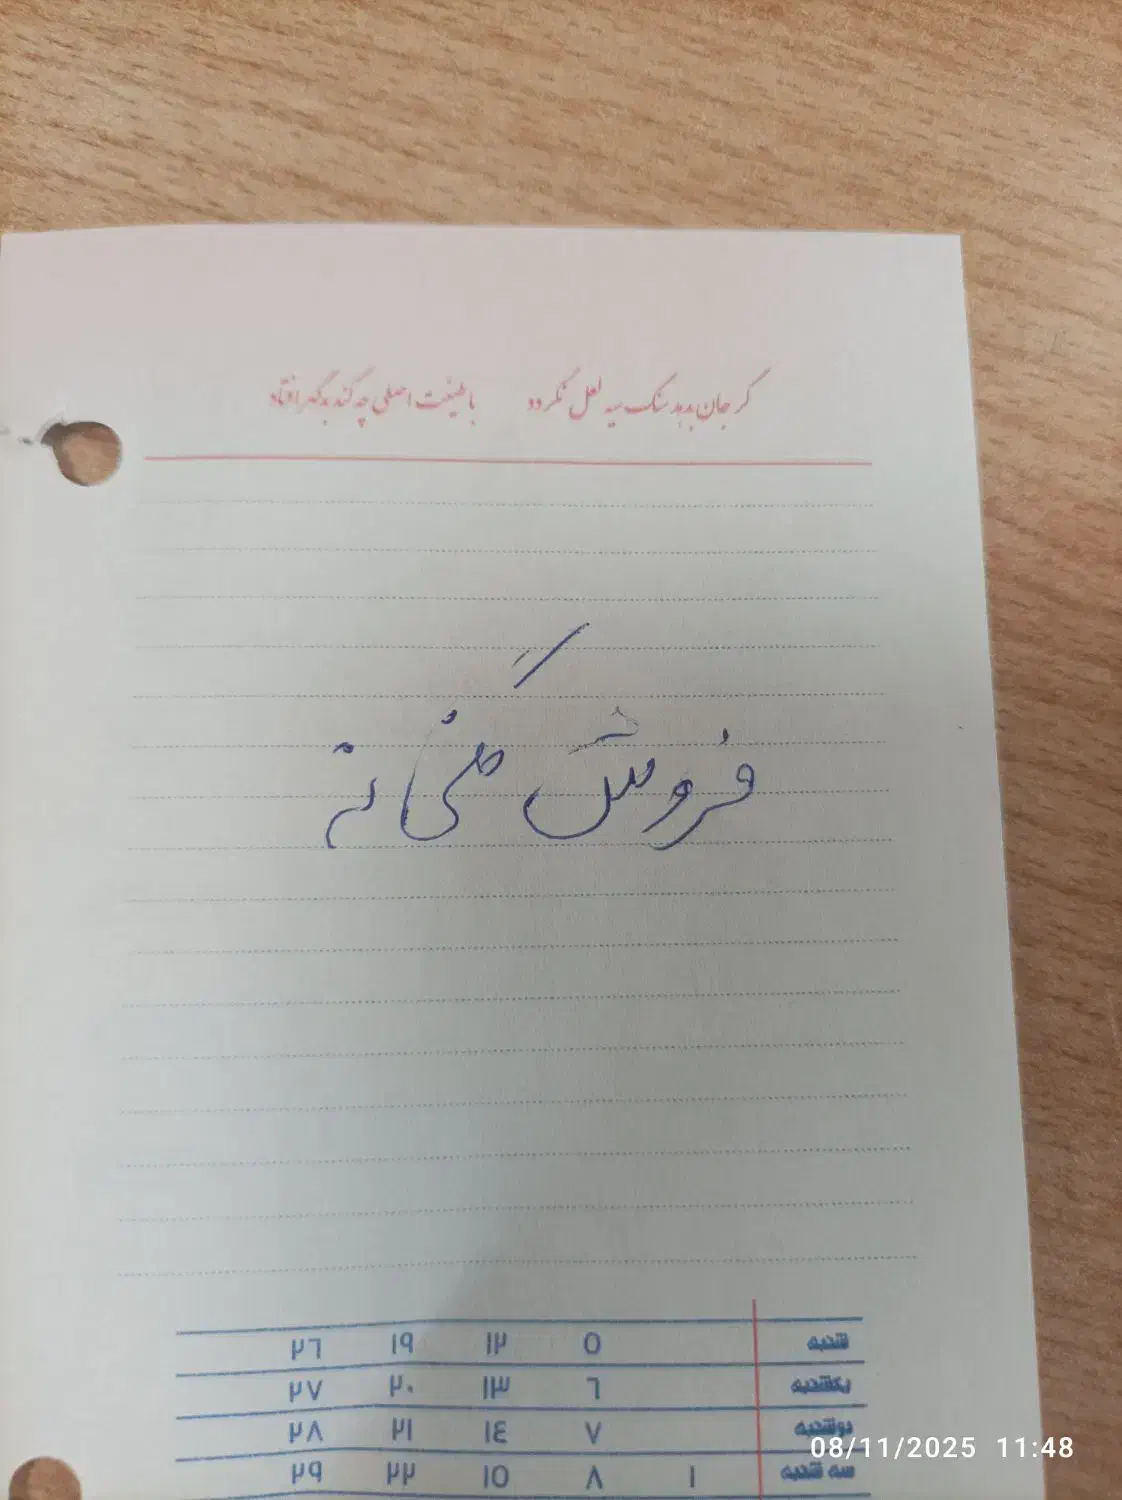 گر جان بدهد سنگ سیه لعل نگردد با طینت اصلی چه کند بدگهر افتاد
فروش گلخانه
شنبه ۵ ۱۲ ۱۹ ۲۶
یکشنبه ۶ ۱۳ ۲۰ ۲۷
دوشنبه ۷ ۱۴ ۲۱ ۲۸
سه شنبه ۱ ۸ ۱۵ ۲۲ ۲۹
08/11/2025 11:48